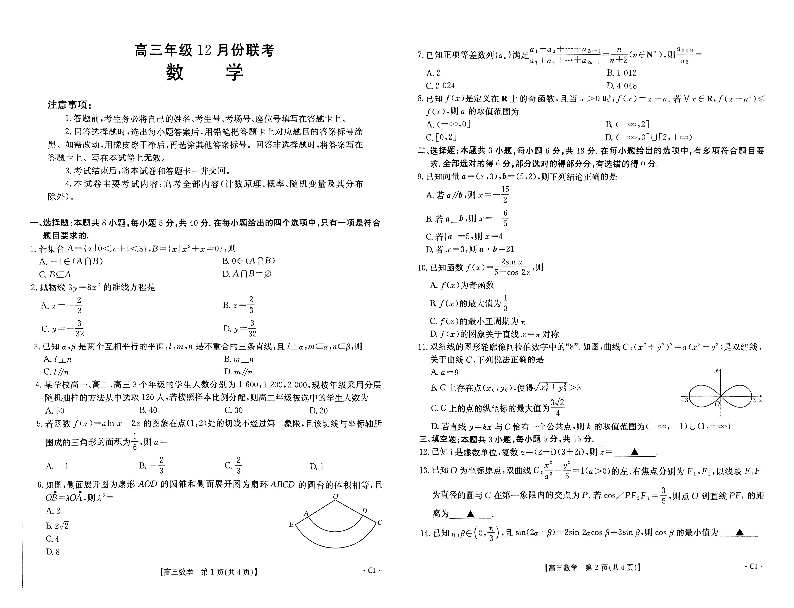 高三年级12月份联考
数 学
注意事项：
1.答题前，考生务必将自己的姓名、考生号、考场号、座位号填写在答题卡上。
2.回答选择题时，选出每小题答案后，用铅笔把答题卡上对应题目的答案标号涂
黑。如需改动，用橡皮擦干净后，再选涂其他答案标号。回答非选择题时，将答案写在
答题卡上。写在本试卷上无效。
3.考试结束后，将本试卷和答题卡一并交回。
4.本试卷主要考试内容：高考全部内容（计数原理、概率、随机变量及其分布
除外）。
一、选择题：本题共8小题，每小题5分，共40分.在每小题给出的四个选项中，只有一项是符合
题目要求的.
1.若集合A={x|0<x+1<3}，B={x|x²+x=0}，则
A.-1∈(A∩B) B.0∈(A∩B)
C.B⊆A D.A∩B=∅
2.抛物线3y=8x²的准线方程是
A.x=-2/3 B.x=2/3
C.y=-3/32 D.y=3/32
3.已知α，β是两个互相平行的平面，l，m，n是不重合的三条直线，且l⊥α，m⊂α，n⊂β，则
A.l⊥n B.m⊥n
C.l∥n D.m∥n
4.某学校高一、高二、高三3个年级的学生人数分别为1 600，1 200，2 000，现按年级采用分层
随机抽样的方法从中选取120人，若按照样本比例分配，则高二年级被选中的学生人数为
A.50 B.40 C.30 D.20
5.若函数f(x)=aln x-2x的图象在点(1,2)处的切线不经过第 象限，且该切线与坐标轴所
围成的三角形的面积为 ，则a=
A.-1 B.-2/3 C.2/3 D.1
6.如图，侧面展开图为扇形AOD的圆锥和侧面展开图为扇环ABCD的圆台的体积相等，且
OB=λOA，则λ³=
A.2
B.2√2
C.4
D.8
O
A
D
B
C
【高三数学 第1页(共4页)】 ·C1·
7.已知正项等差数列{aₙ}满足 =n/(n+2)(n∈N*)，则 =
A.2 B.1 012
C.2 024 D.4 048
8.已知f(x)是定义在R上的奇函数，且当x>0时，f(x)=x-a.若∀x∈R，f(x-a²)≤
f(x)，则a的取值范围为
A.(-∞,0] B.(-∞,2]
C.[0,2] D.(-∞,0]∪[2,+∞)
二、选择题：本题共3小题，每小题6分，共18分.在每小题给出的选项中，有多项符合题目要
求.全部选对的得6分，部分选对的得部分分，有选错的得0分.
9.已知向量a=(x,3)，b=(5,2)，则下列结论正确的是
A.若a∥b，则x=-15/2
B.若a⊥b，则x=-6/5
C.若|a|=5，则x=4
D.若x=3，则a·b=21
10.已知函数f(x)=2sin x/(5-cos 2x)，则
A.f(x)为奇函数
B.f(x)的最大值为1/3
C.f(x)的最小正周期为π
D.f(x)的图象关于直线x=π对称
11.双纽线的图形轮廓像阿拉伯数字中的“8”.如图，曲线C:(x²+y²)²=a(x²-y²)是双纽线，
关于曲线C，下列说法正确的是
A.a=9
B.C上存在点(x₀,y₀)，使得√(x₀²+y₀²)>3
C.C上的点的纵坐标的最大值为3√2/4
D.若直线y=kx与C恰有一个公共点，则k的取值范围为(-∞,-1)∪(1,+∞)
y
-3
O
3
x
三、填空题：本题共3小题，每小题5分，共15分.
12.已知i是虚数单位，复数z=(2-i)(3+2i)，则z= ▲ .
13.已知O为坐标原点，双曲线C: =1(a>0)的左、右焦点分别为F₁，F₂，以线段F₁F₂
为直径的圆与C在第一象限内的交点为P.若cos∠PF₂F₁=3/5，则点O到直线PF₁的距
离为 ▲ .
14.已知α，β∈(0,π/3)，且sin(2α-β)=2sin 2αcos β-3sin β，则cos β的最小值为 ▲
【高三数学 第2页(共4页)】 ·C1·